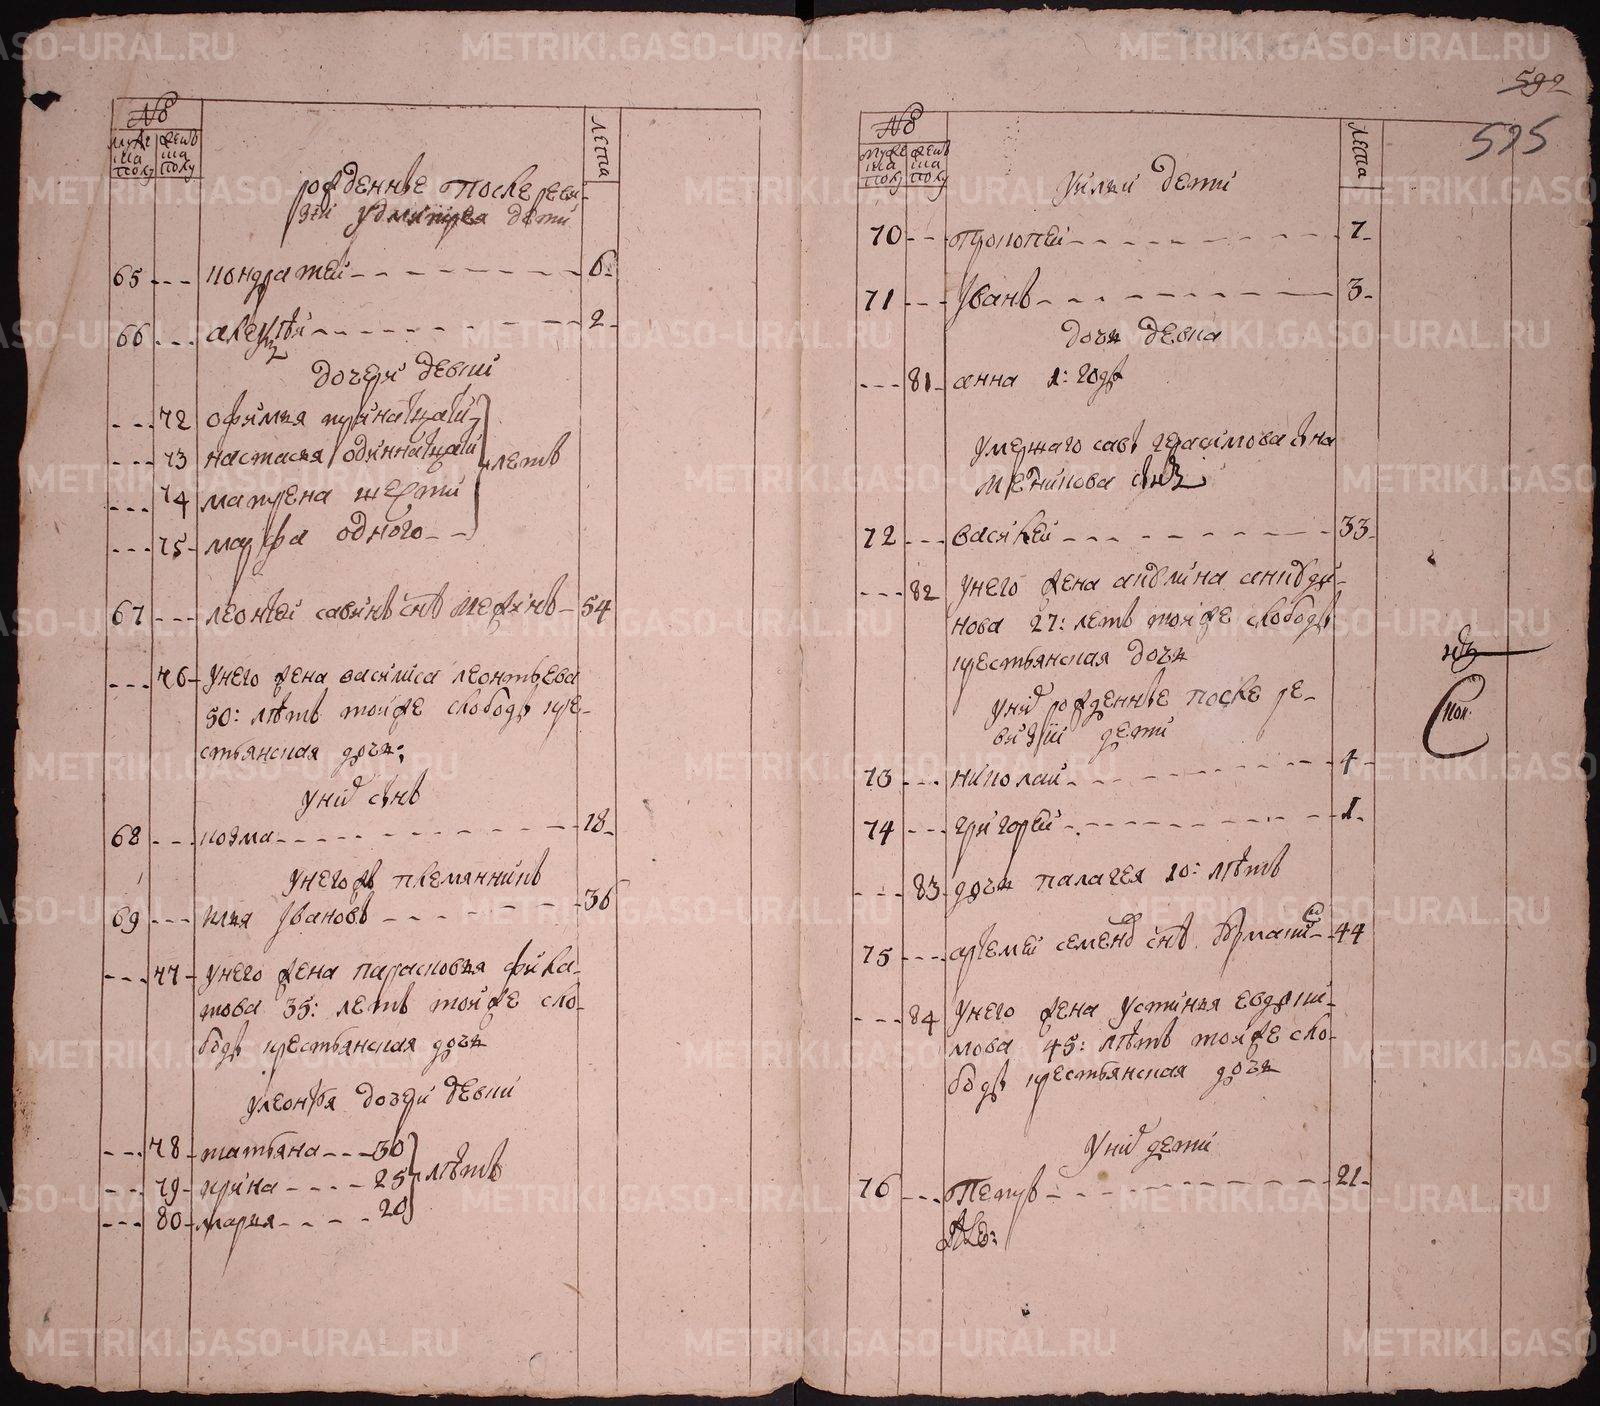 №
мужеска полу
женска полу
лета
рожденные после реви-
зии у дмитрея дети
65 --- кондратей --- 6
66 --- алексей --- 2
дочери девки
--- 72 офимья тринатцати
--- 73 настасья одиннатцати
летъ
--- 74 матрена шести
--- 75 марфа одного
67 --- леонтей савинъ снъ --- 54
--- 76 у него жена василиса леонтьева
50: летъ той же слободы кре-
стьянская дочь
у них снъ
68 --- козма --- 18
у него жъ племянникъ
69 --- илья Iвановъ --- 36
--- 77 у него жена парасковья фила-
това 35: летъ той же сло-
боды крестьянская дочь
у леонтья дочери девки
--- 78 татьяна --- 30
--- 79 ирина --- 25 летъ
--- 80 марья --- 20
592
595
№
мужеска полу
женска полу
лета
у ильи дети
70 --- прокопей --- 7
71 --- Iванъ --- 3
дочь девка
--- 81 анна 1: году
умершаго савы герасимова сына
72 --- василей --- 33
--- 82 у него жена акилина
27: летъ той же слободы
крестьянская дочь
у них рожденные после ре-
визии дети
73 --- николай --- 4
74 --- григорей --- 1
--- 83 дочь палагея 10: летъ
75 --- артемей семенов снъ --- 44
--- 84 у него жена устинья евдоки-
мова 45: летъ той же сло-
боды крестьянская дочь
у них дети
76 --- петръ --- 21